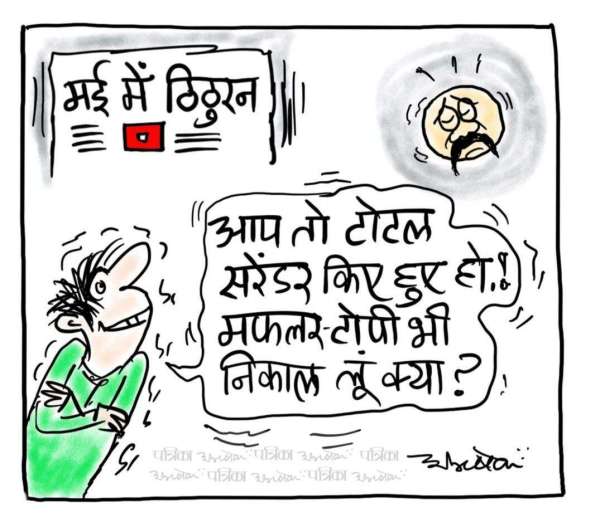 मई में ठिठुरन
आप तो टोटल
सरेंडर किए हुए हो.!
मफलर-टोपी भी
निकाल लूं क्या?
पत्रिका पत्रिका पत्रिका
पत्रिका पत्रिका पत्रिका